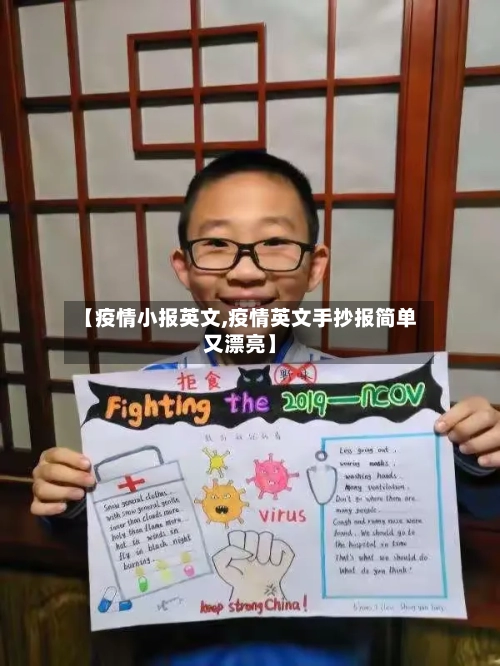 【疫情小报英文,疫情英文手抄报简单
又漂亮】
拒食 野味
Fighting the 2019—nCOV
virus
Snow general clothes
with snow general pestle
hot in winds in
fly in black night
burning
Less going out.
washing hands.
Many ventilation.
Don't go where there are
many people.
Cough and runny nose were
found. We should go to
the hospital in time
That's what we should do
What do you think?
keep strong China!